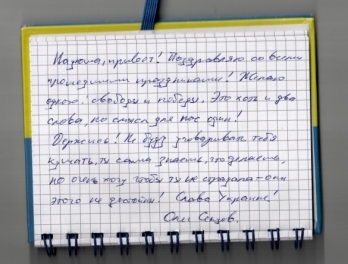 Надюша, привет! Поздравляю со всеми
прошедшими праздниками! Желаю
одного: свободы и победы. Это хоть и два
слова, но смысл для нас один!
Держись! Не буду уговаривать тебя
кушать, ты сама знаешь, что делаешь,
но очень хочу чтобы ты не сдавалась - они
этого не дождутся! Слава Украине!
Олег Сенцов.